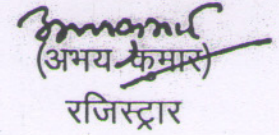 (अभय कुमार)
रजिस्ट्रार